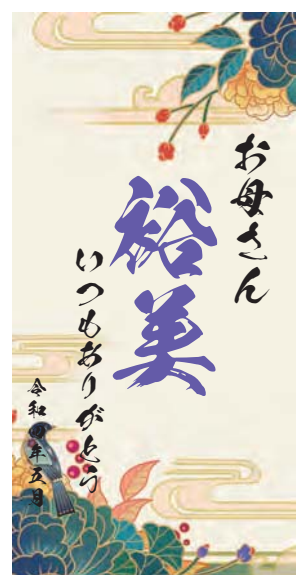 お母さん
裕美
いつもありがとう
令和四年五月